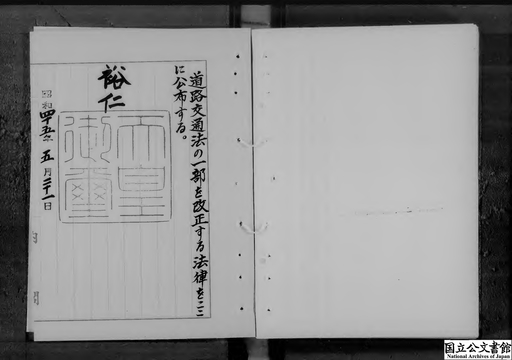 道路交通法の一部を改正する法律をここ
に公布する。
裕仁
天皇
御璽
昭和四十五年五月二十一日
国立公文書館
National Archives of Japan